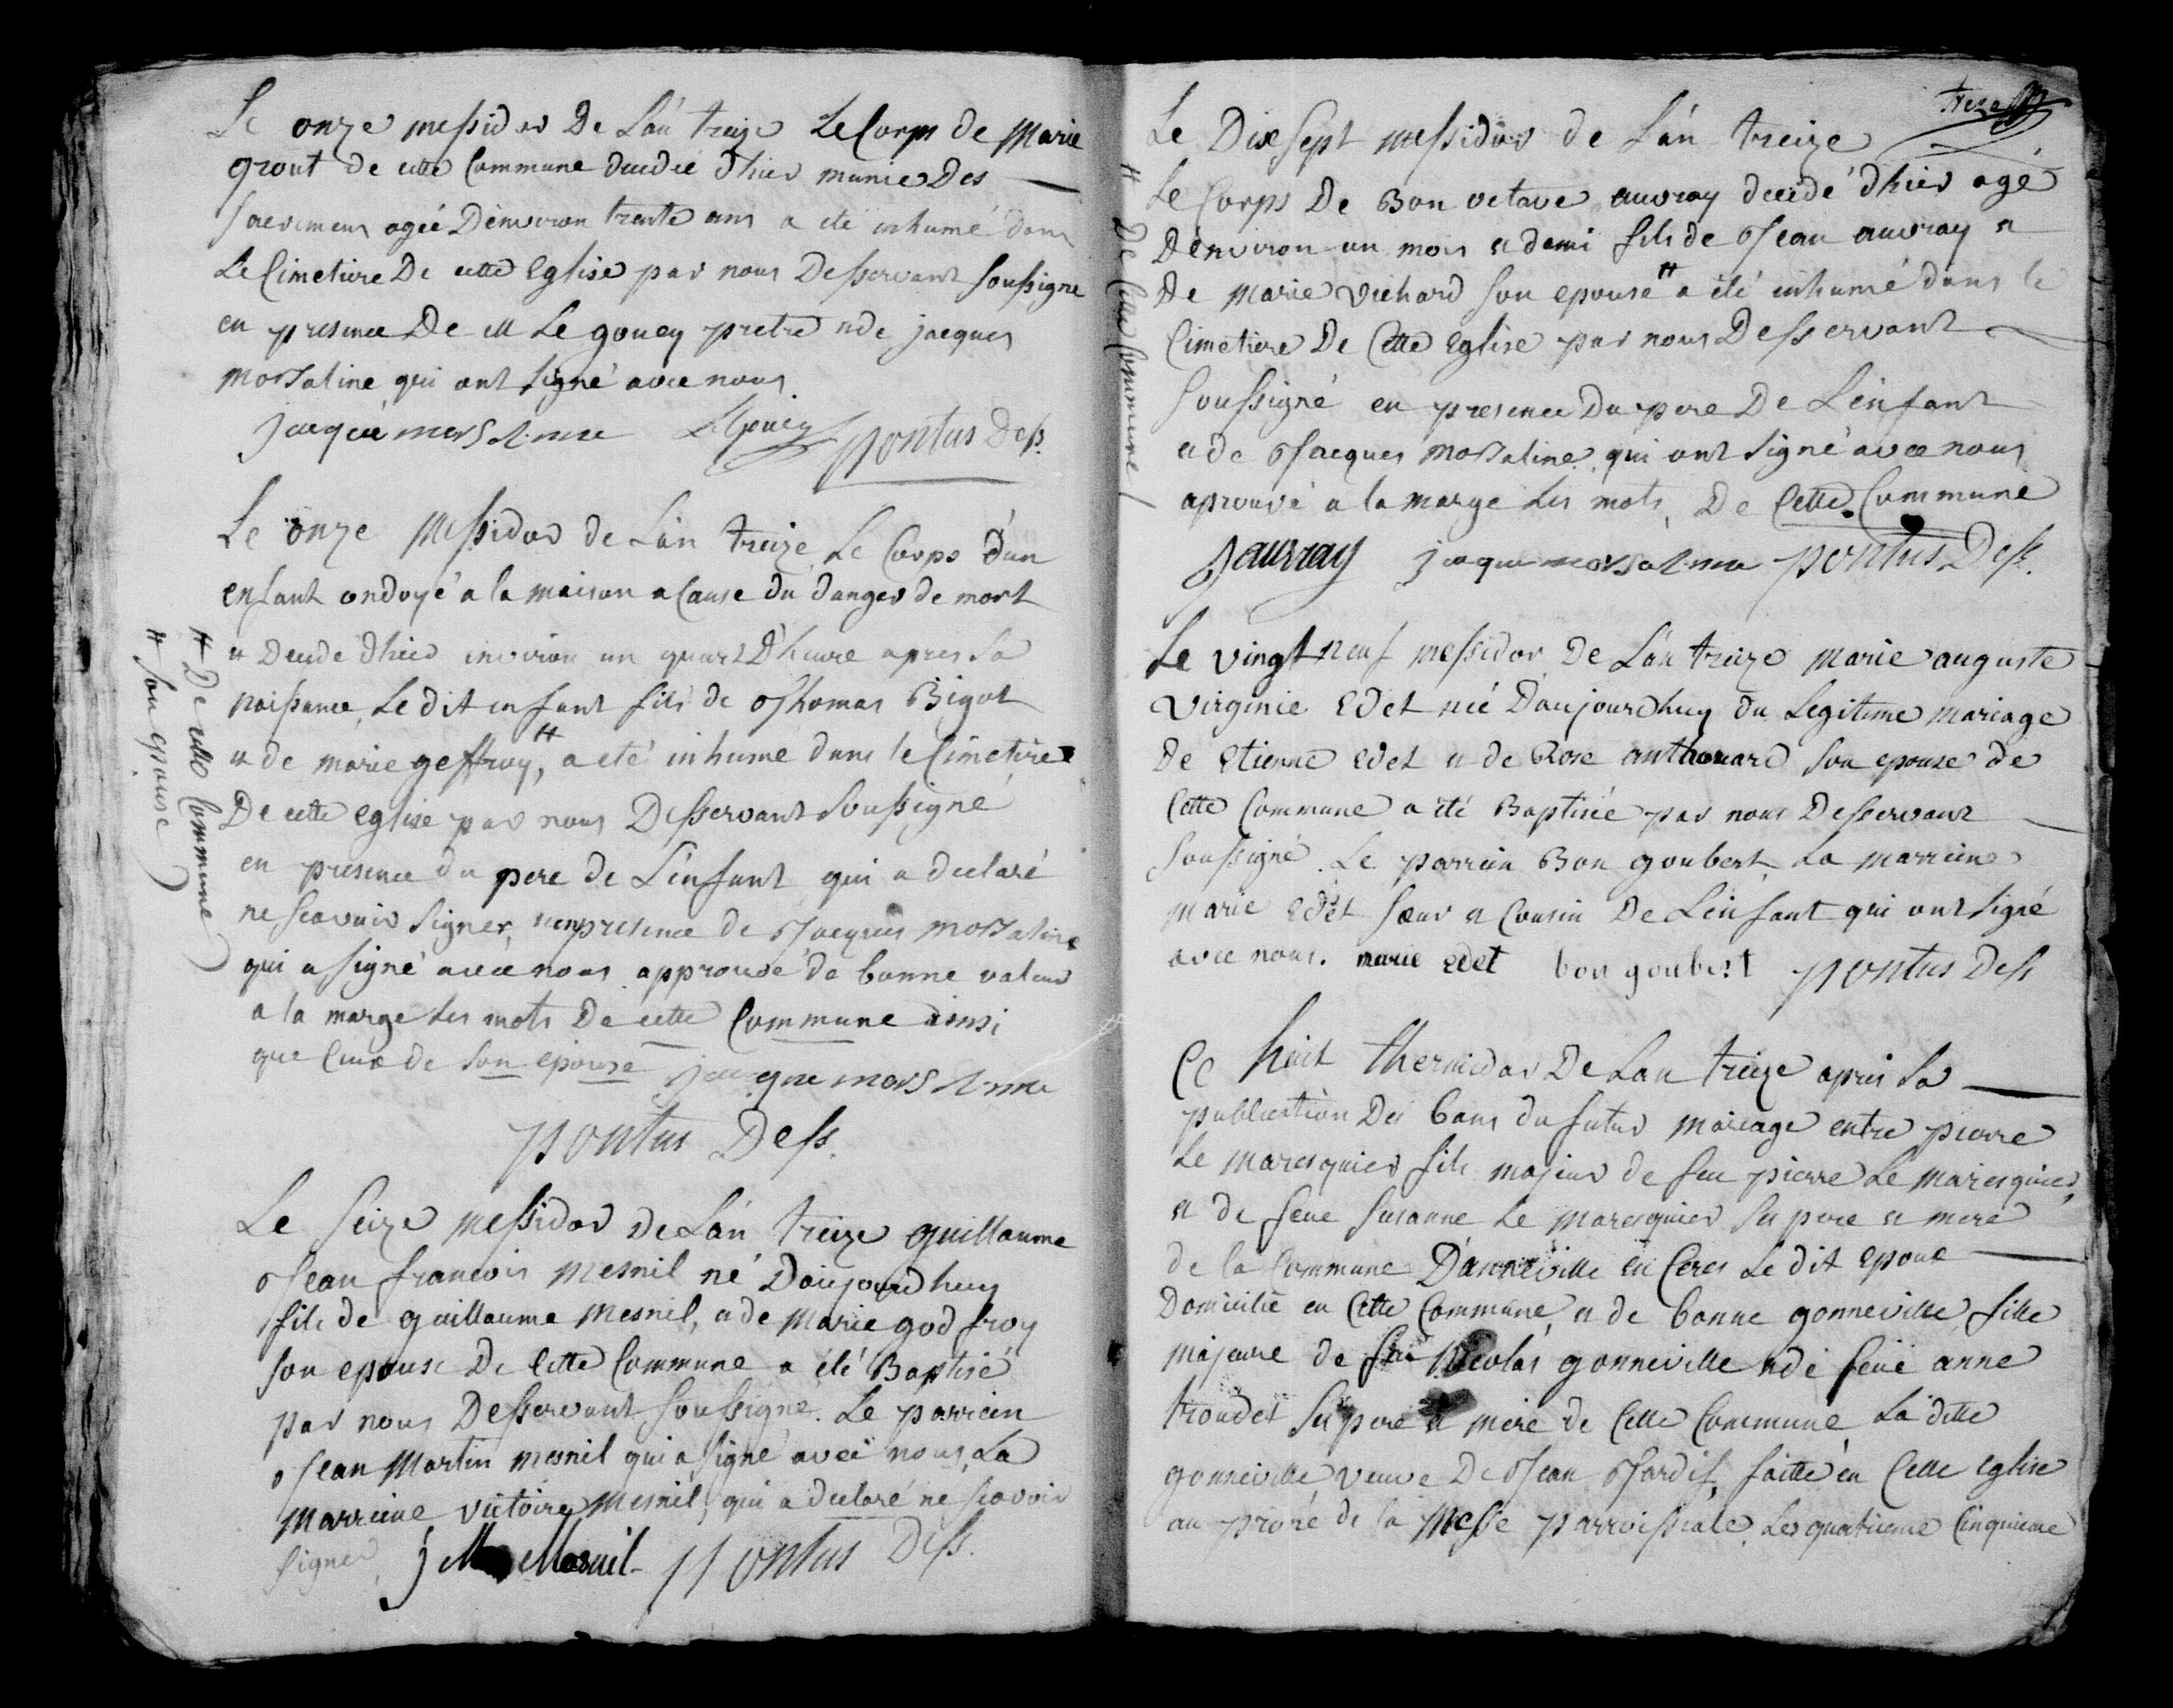 Le onze messidor De L'an treize Le Corps de Marie
grout de cette Commune decedée d'hier munie Des
sacremens agée D'environ trente ans a été inhumé dans
Le Cimetiere De cette Eglise par nous Desservant soussigné
en presence De M Le gouey pretre et de jacques
morsaline qui ont signé avec nous
jacque morsaline Legouey pontus Dess.
Le onze Messidor de L'an treize Le Corps d'un
enfant ondoyé a la maison a Cause du danger de mort
et Decede d'hier environ un quart D'heure apres sa
naissance, Le dit enfant fils de Thomas Bigot
et de marie geffroy, # a eté inhumé dans le Cimetiere
De cette eglise par nous Desservant soussigné
en presence du pere de L'enfant qui a declaré
ne scavoir signer, et en presence de Jacques morsaline
qui a signé avec nous approuvé de bonne valeur
a la marge Les mots De cette Commune ainsi
que Ceux de son epouse jacque morsaline
pontus Dess.
# De cette Commune
# son epouse
Le seize messidor De L'an treize guillaume
Jean francois Mesnil né D'aujourdhuy
fils de guillaume Mesnil, et de Marie godfroy
son epouse De Cette Commune a été Baptisé
par nous Desservant soussigné. Le parrein
Jean Martin mesnil qui a signé avec nous, La
marreine victoire Mesnil, qui a declaré ne scavoir
signer, j M Mesnil pontus Dess.
treze
Le Dix sept messidor de L'an treize
Le Corps De Bon octave auvray decedé d'hier agé
D'environ un mois et demi fils de Jean auvray et
De marie vichard son epouse # a été inhumé dans le
Cimetiere De Cette Eglise par nous Desservant
soussigné en presence Du pere De L'enfant
et de Jacques morsaline, qui ont signé avec nous
aprouvé a la marge Les mots, De Cette Commune
J auvray jacque morsaline pontus Dess.
# De Cette Commune
Le vingt neuf messidor De L'an treize marie auguste
virginie Edet née D'aujourdhuy du Legitime mariage
De Etienne Edet et de Rose anthouard son epouse de
Cette Commune a été Baptisée par nous Desservant
soussigné. Le parrein Bon goubert, La marreine
marie Edet sœur et Cousin De L'enfant qui ont signé
avec nous. marie edet bon goubert pontus Dess
Ce huit thermidor De L'an treize apres La
publication Des bans du futur mariage entre pierre
Le maresquier fils majeur de feu pierre Le maresquier,
et de feue susanne Le maresquier ses pere et mere
de la Commune D'anneville en Ceres Le dit epoux
Domicilié en Cette Commune, et de bonne gonneville, fille
majeure de feu Nicolas gonneville et de feue anne
troudet ses pere et mere de Cette Commune La ditte
gonneville, veuve De Jean Tardif, faitte en Cette eglise
au prone de la Messe parroissiale Les quatrieme Cinquieme